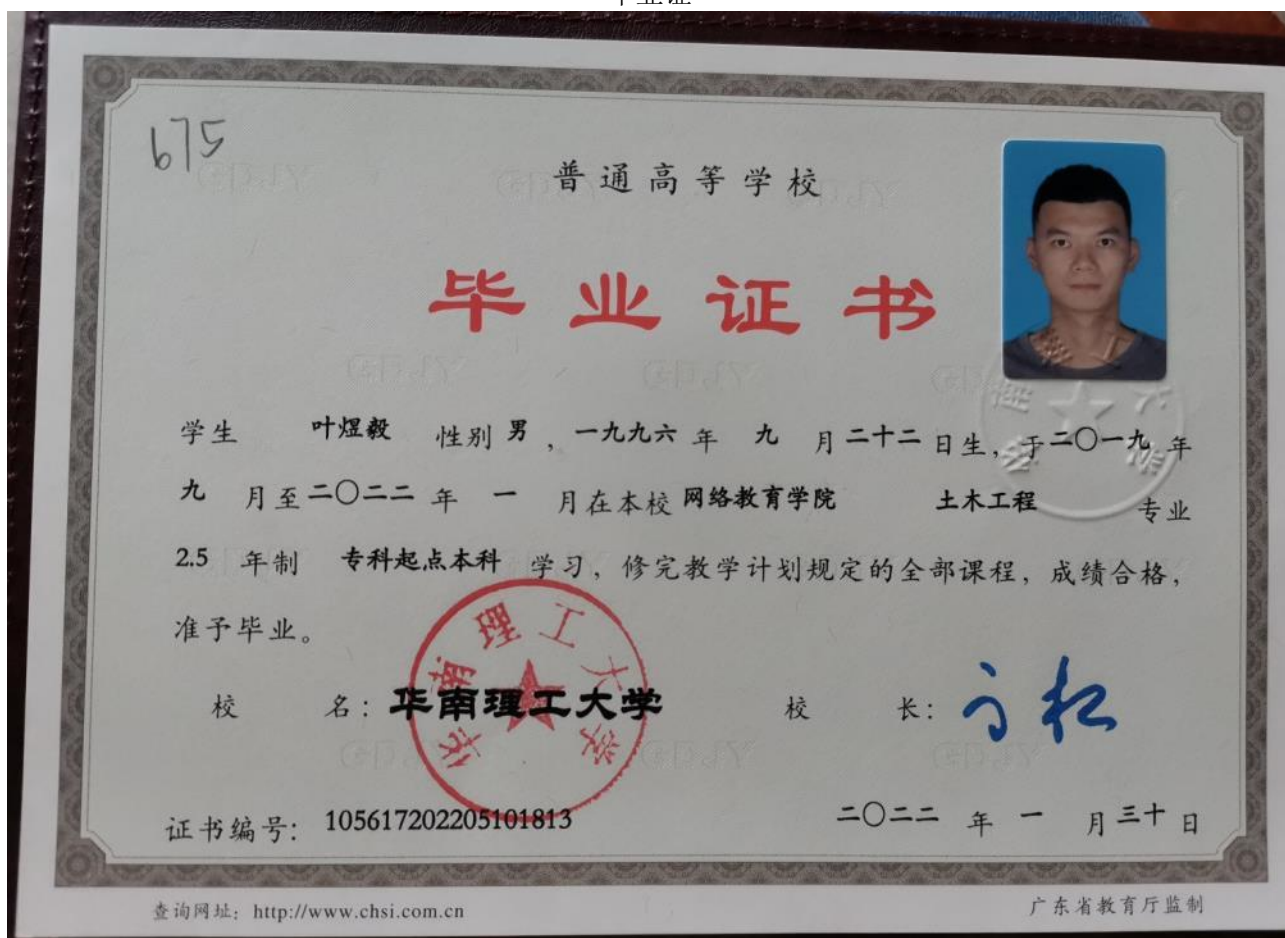 毕业证
675
普通高等学校
毕业证书
学生 叶煜毅 性别 男 ，一九九六 年 九 月 二十二 日生，于 二〇一九 年
九 月至 二〇二二 年 一 月在本校 网络教育学院 土木工程 专业
2.5 年制 专科起点本科 学习，修完教学计划规定的全部课程，成绩合格，
准予毕业。
华南理工大学
校 名：华南理工大学 校 长：
证书编号：105617202205101813 二〇二二 年 一 月 三十 日
查询网址：http://www.chsi.com.cn 广东省教育厅监制